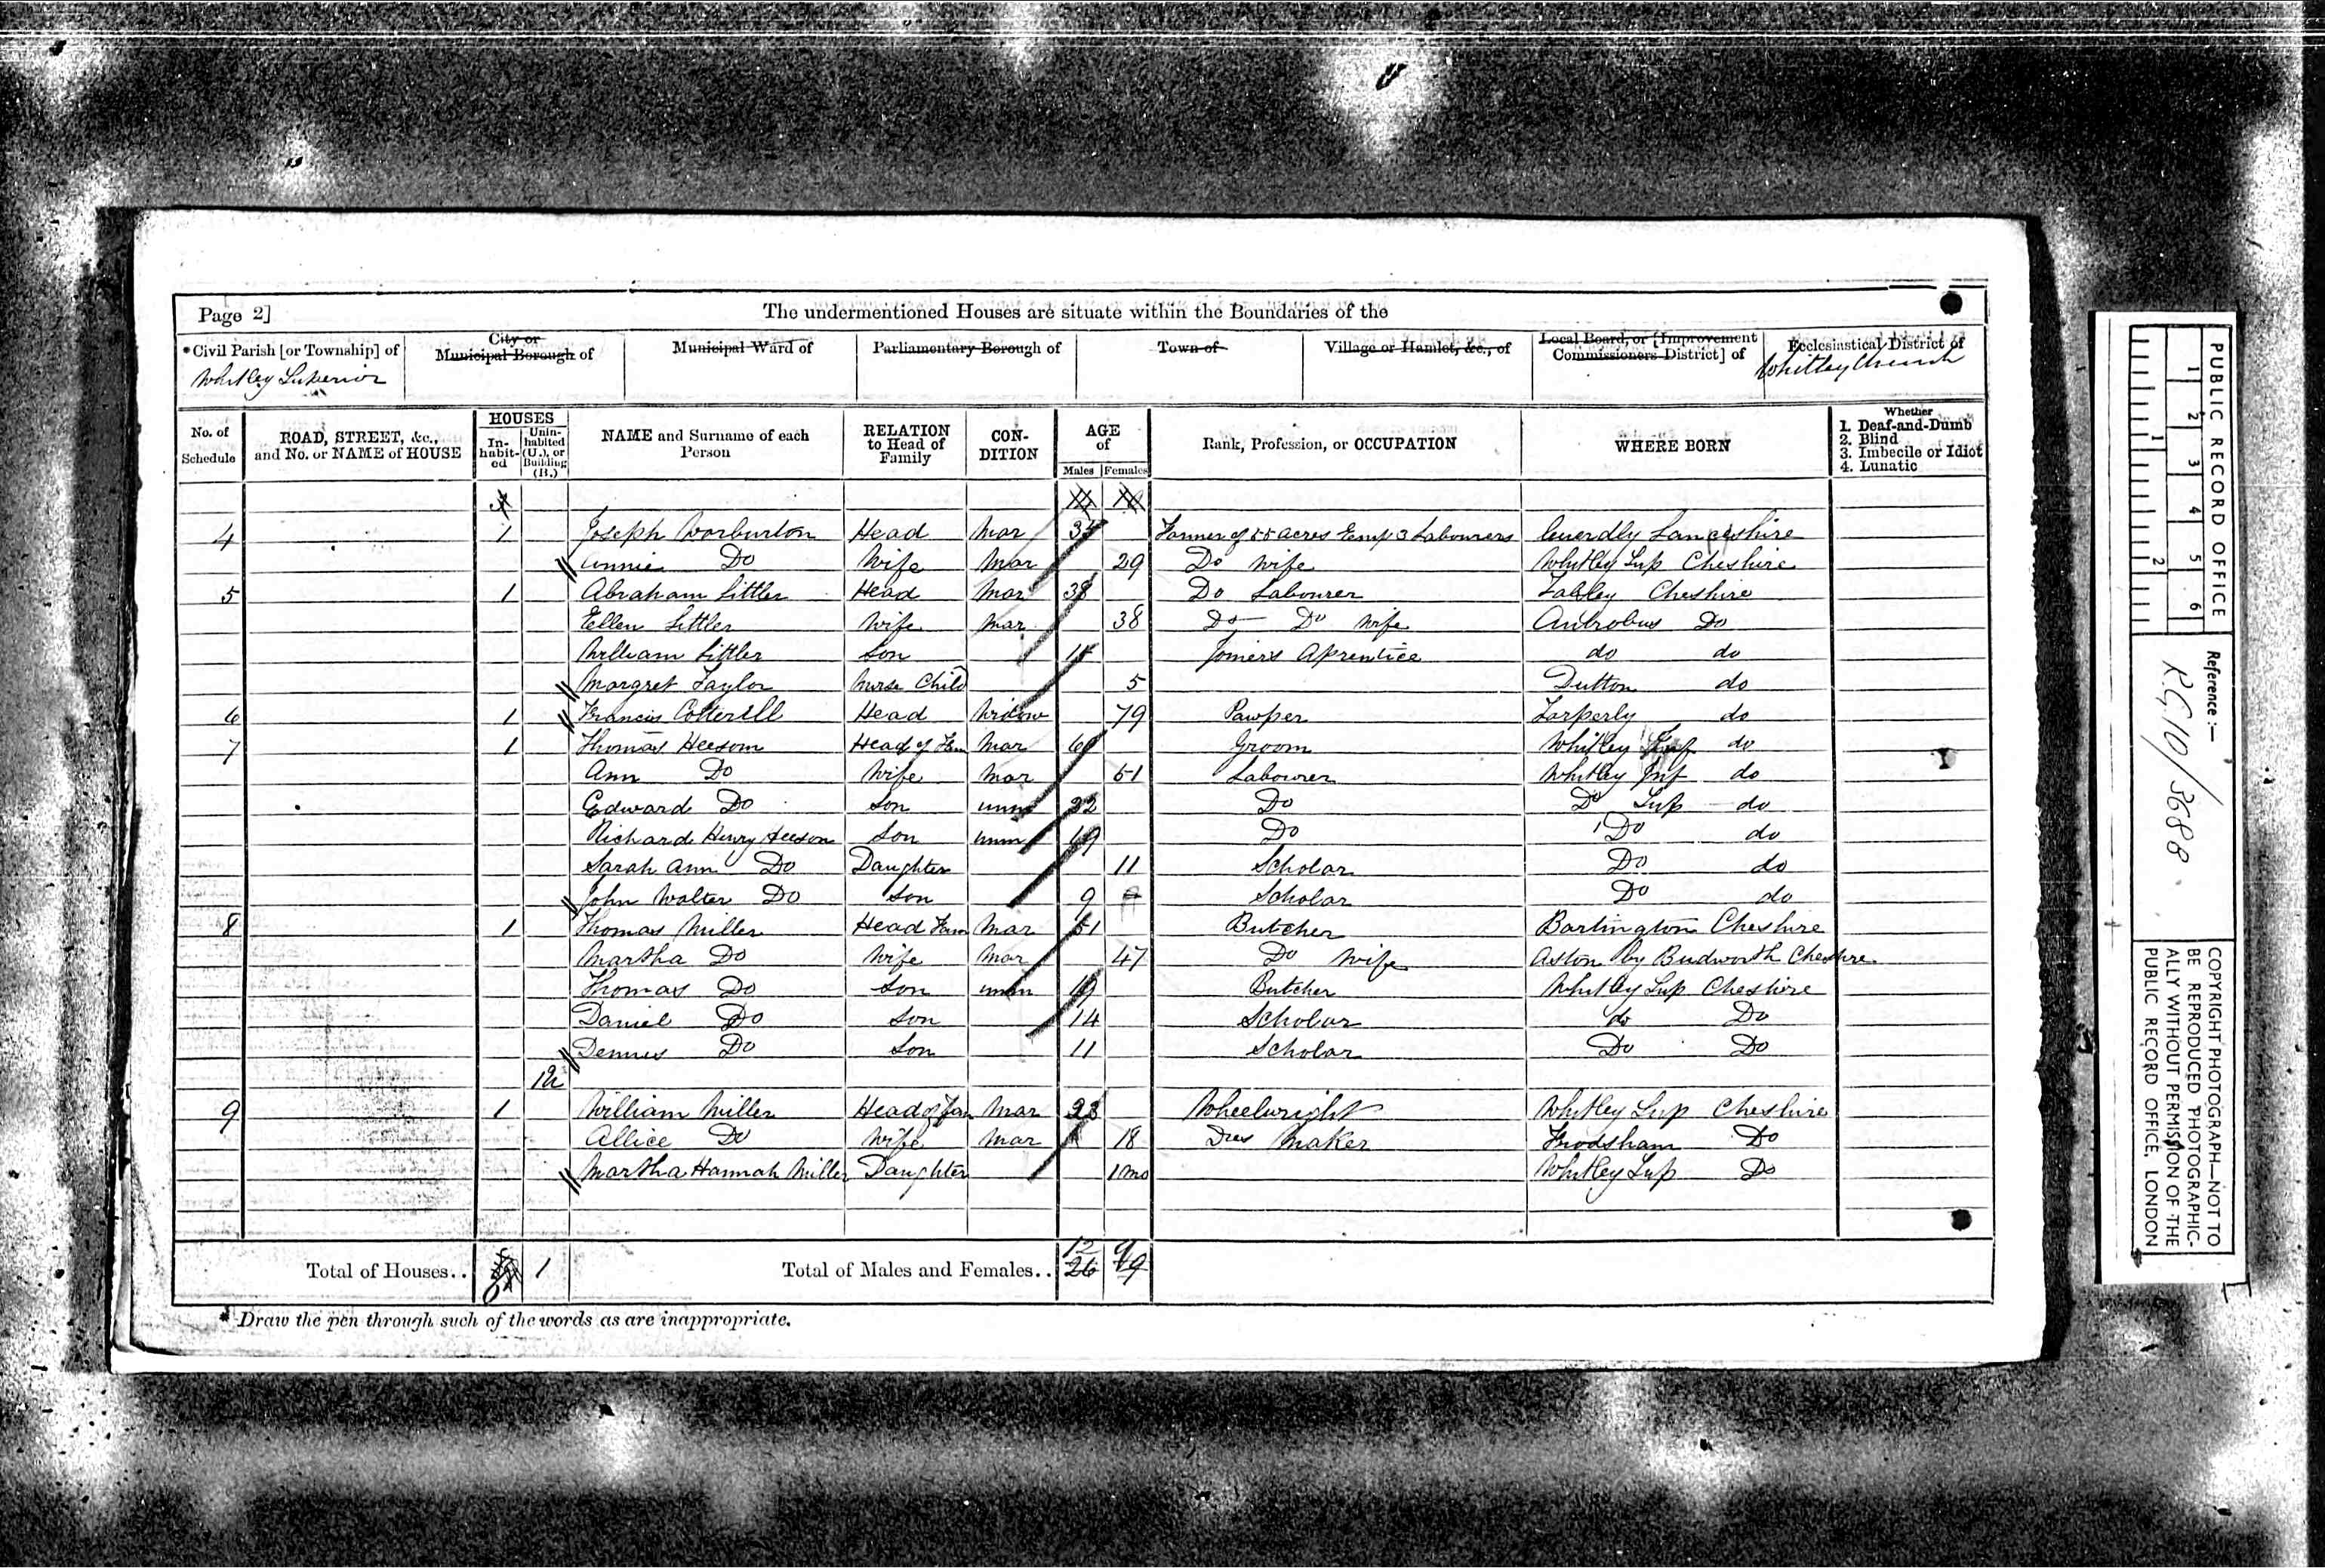 Page 2]
The undermentioned Houses are situate within the Boundaries of the
*Civil Parish [or Township] of
City or Municipal Borough of
Municipal Ward of
Parliamentary Borough of
Town of
Village or Hamlet, &c., of
Local Board, or [Improvement Commissioners District] of
Ecclesiastical District of
Whitley Superior
Whitley Church
No. of Schedule
ROAD, STREET, &c., and No. or NAME of HOUSE
HOUSES
In-habit-ed
Unin-habited (U.), or Building (B.)
NAME and Surname of each Person
RELATION to Head of Family
CON-DITION
AGE of
Males
Females
Rank, Profession, or OCCUPATION
WHERE BORN
Whether
1. Deaf-and-Dumb
2. Blind
3. Imbecile or Idiot
4. Lunatic
4 1 Joseph Warburton Head Mar Farmer of 55 acres Emp 3 Labourers Cuerdly Lancashire
Annie Do Wife Mar 29 Do Wife Whitley Sup Cheshire
5 1 Abraham Littler Head Mar 38 Do Labourer Tabley Cheshire
Ellen Littler Wife Mar 38 Do Do Wife Antrobus Do
William Littler Son Joiners Aprentice do do
Margret Taylor Nurse Child 5 Dutton do
6 1 Francis Cotterill Head Widow 79 Pawper Torperly do
7 1 Thomas Heesom Head of Fam Mar Groom Whitley do
Ann Do Wife Mar 51 Labourer Whitley Inf do
Edward Do Son unm 22 Do Do Sup do
Richard Henry Heesom Son unm 19 Do Do do
Sarah Ann Do Daughter 11 Scholar Do do
John Walter Do Son 9 Scholar Do do
8 1 Thomas Miller Head Fam Mar 51 Butcher Bartington Cheshire
Martha Do Wife Mar 47 Do Wife Aston by Budworth Cheshire
Thomas Do Son unm 19 Butcher Whitley Sup Cheshire
Daniel Do Son 14 Scholar do Do
Dennis Do Son 11 Scholar Do Do
1u
9 1 William Miller Head of Fam Mar 23 Wheelwright Whitley Sup Cheshire
Allice Do Wife Mar 18 Dres Maker Frodsham Do
Martha Hannah Miller Daughter 1mo Whitley Sup Do
Total of Houses.. 1
Total of Males and Females.. 12 9
26 19
* Draw the pen through such of the words as are inappropriate.
PUBLIC RECORD OFFICE
1 2 3 4 5 6
1 2
Reference :-
R.G. 10/3688
COPYRIGHT PHOTOGRAPH—NOT TO
BE REPRODUCED PHOTOGRAPHIC-
ALLY WITHOUT PERMISSION OF THE
PUBLIC RECORD OFFICE, LONDON